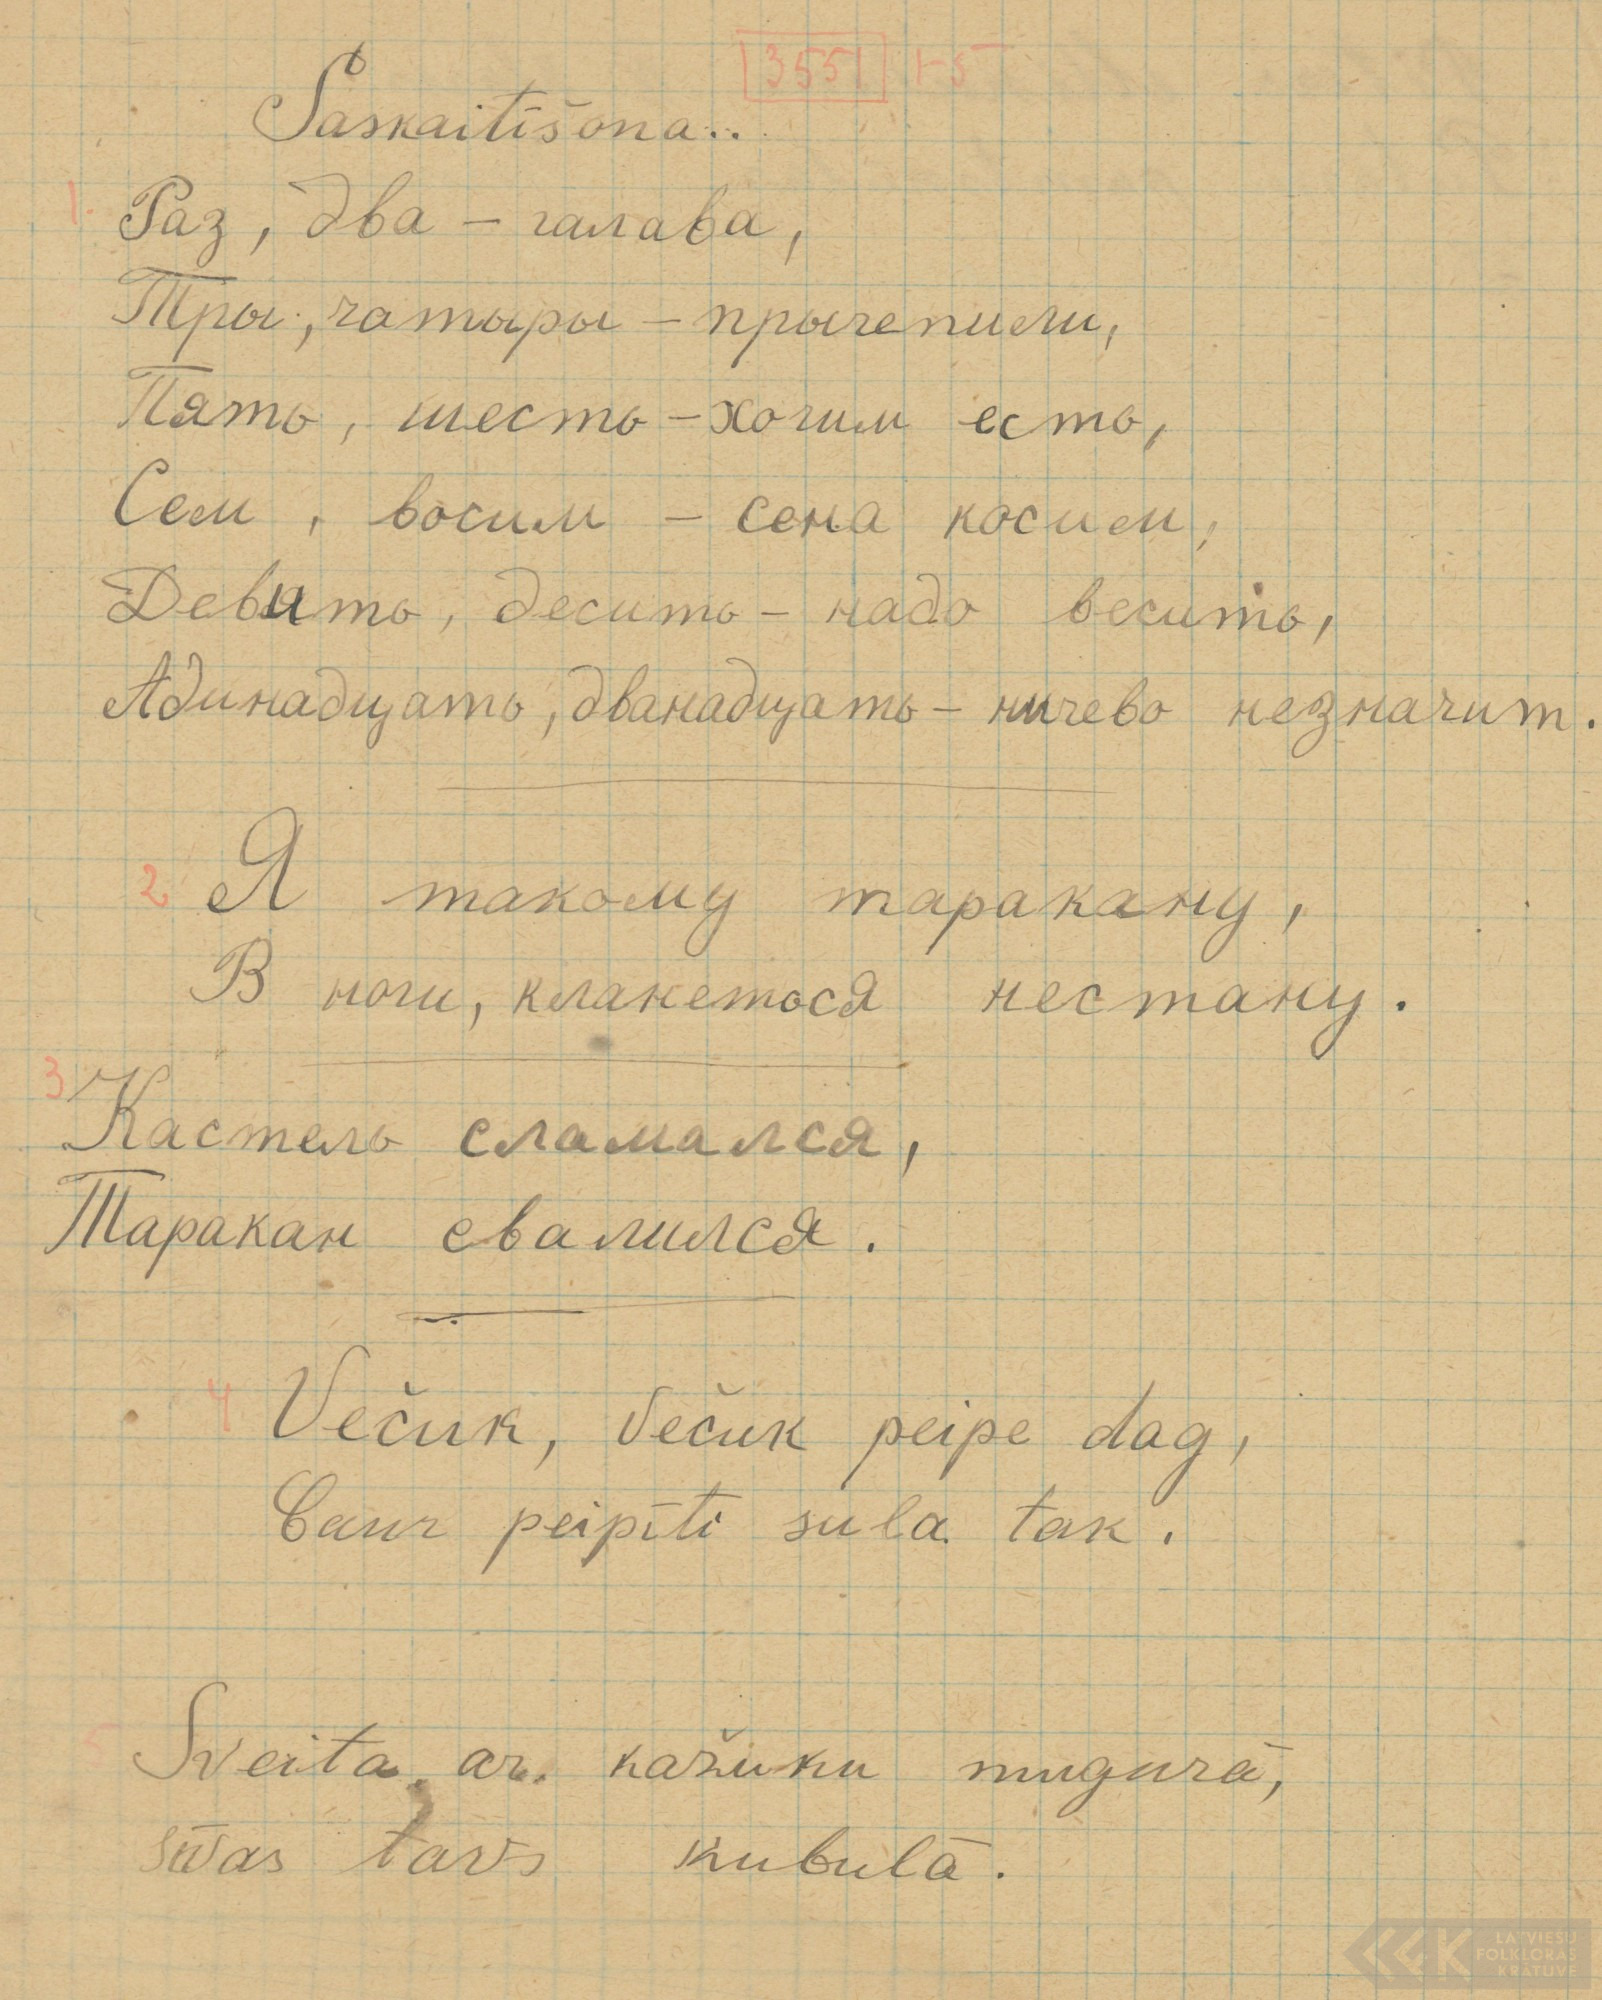 3551 1-5
Saskaitīšona..
1. Раз, два – галава,
Тры, чатыры – прычепили,
Пять, шесть – хочим есть,
Сем, восим – сена косим,
Девить, десить – надо весить,
Адинадцать, дванадцать – ничево незначит.
2 Я такому таракану,
В ноги, кланеться нестану.
3 Кастель сламался,
Таракан свалился.
4 Večuk, večuk peipe dag,
Caur peipīti sula tak.
5 Sveita ar kažuku mugurā,
sivas tavs kubulā.
LATVIEŠU
FOLKLORAS
KRĀTUVE